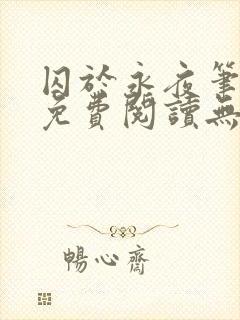 囚於永夜筆
免費閱讀無
暢心齋